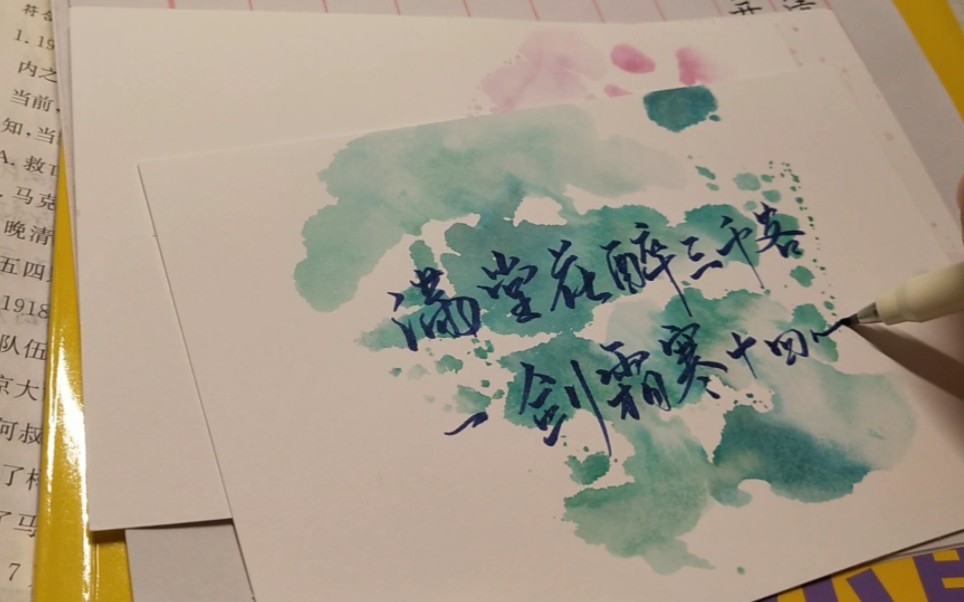 满堂花醉三千客
一剑霜寒十四
1.19
内之
当前,
知,当
A.救亡
马克
晚清
五四
1918
队伍
京大
何叔
了
了马
7